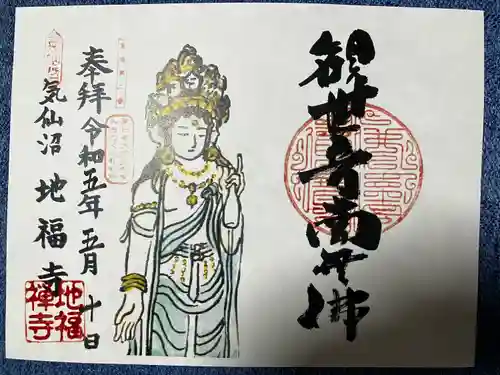 観世音南無佛
奉拝令和五年五月十日
気仙沼地福寺
地福
禅寺